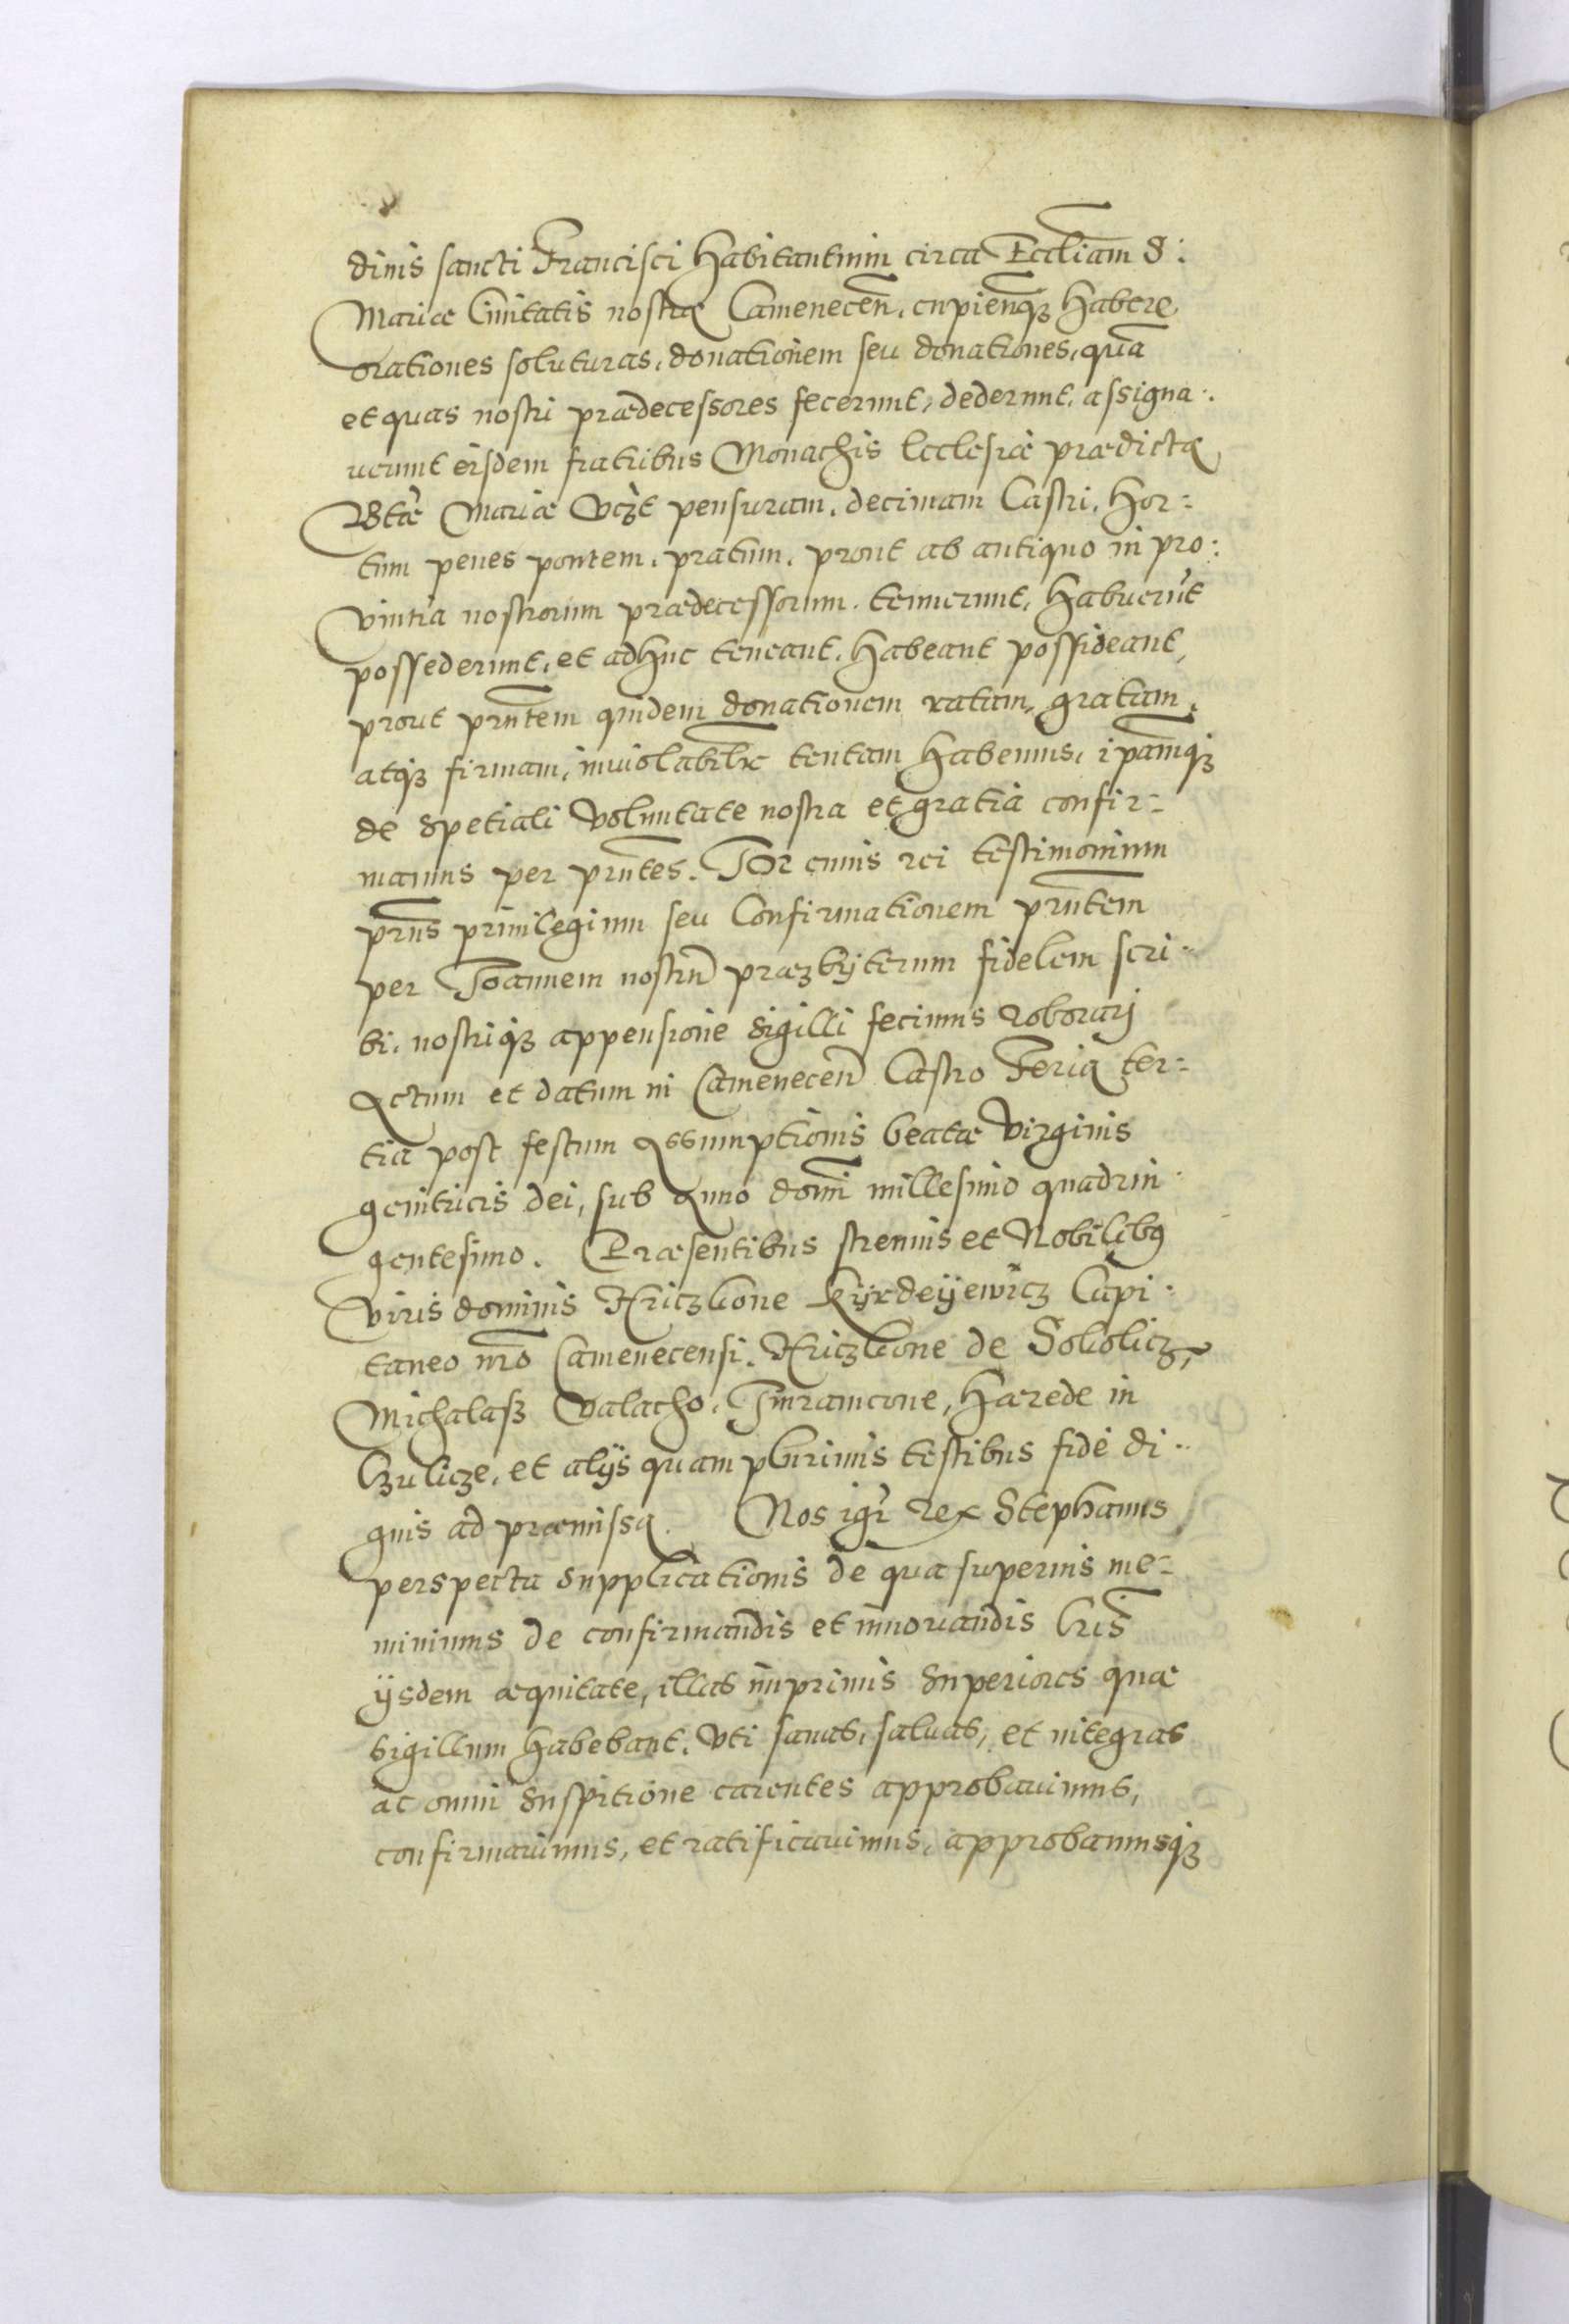 dinis sancti Francisci habitantium circa Eccliam S:
Mariae Civitatis nostrae Camenecen. cupienq₃ habere
orationes soluturas, donationem seu donationes, quã
et quas nostri praedecessores fecerunt, dederunt, assigna:
verunt eisdem fratribus Monachis Ecclesiae praedictae
Btae Mariae vczt pensuram, decimam Castri, hor:
tum penes pontem, pratum, prout ab antiquo in pro:
vintia nostrorum praedecessorum tenuerunt, habuerũt
possederunt, et adhuc teneant, habeant possideant,
prout prñtem quidem donationem ratam, gratam,
atq₃ firmam, inviolabilr tentam habemus, ipamq₃
de spetiali voluntate nostra et gratia confir:
mamus per prñtes. In cuius rei testimonium
prñs privilegium seu Confirmationem prñtem
per Ioannem nostrũ praezbyterum fidelem scri:
bi, nostriq₃ appensione sigilli fecimus roborarj
Actum et datum in Camenecen Castro Feria ter:
tia post festum Assumptionis beatae Virginis
genitricis dei, sub Anno domi millesimo quadrin:
gentesimo. Praesentibus strenuis et Nobilibq
viris dominis Hriczkone Kyrdeyewicz Capi:
taneo nro Camenecensi. Hriczkone de Sokolicz,
Michalaß Valacho, haerede in
Czulicze, et alijs quam plurimis testibus fide di:
gnis ad praemissa. Nos igr Rex Stephanus
perspecta supplicationis de qua superius me:
minimus de confirmandis et innovandis lris
ijsdem aequitate, illas inprimis superiores quae
sigillum habebant, uti sanas, salvas, et integras
ac omni suspitione carentes approbavimus,
confirmavimus, et ratificavimus, approbamusq₃